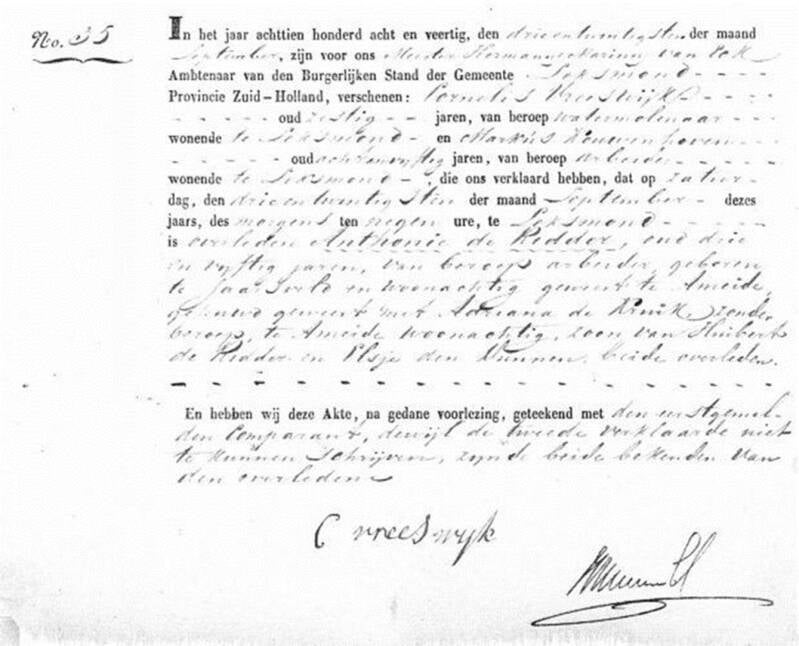 No. 35
In het jaar achttien honderd acht en veertig, den drieentwintigsten der maand
September, zijn voor ons Meester Hermannus Marinus van
Ambtenaar van den Burgerlijken Stand der Gemeente Leksmond
Provincie Zuid-Holland, verschenen: Cornelis Vreeswijk
oud zestig jaren, van beroep watermolenaar
wonende te Leksmond en Markus Kouwenhoven
oud achtenvyftig jaren, van beroep arbeider
wonende te Leksmond, die ons verklaard hebben, dat op zatur-
dag, den drieentwintigsten der maand September dezes
jaars, des morgens ten negen ure, te Leksmond
is overleden Anthonie de Ridder, oud drie
en vyftig jaren, van beroep arbeider, geboren
te Jaarsveld en woonachtig geweest te Ameide,
gehuwd geweest met Adriana de Kruik zonder
beroep, te Ameide woonachtig, zoon van Huibert
de Ridder en Elsje den Dunnen, beide overleden.
En hebben wij deze Akte, na gedane voorlezing, geteekend met den eerstgemel-
den Comparant, dewijl de tweede verklaarde niet
te kunnen schrijven, zynde beide bekenden van
den overledene
C vreeswyk